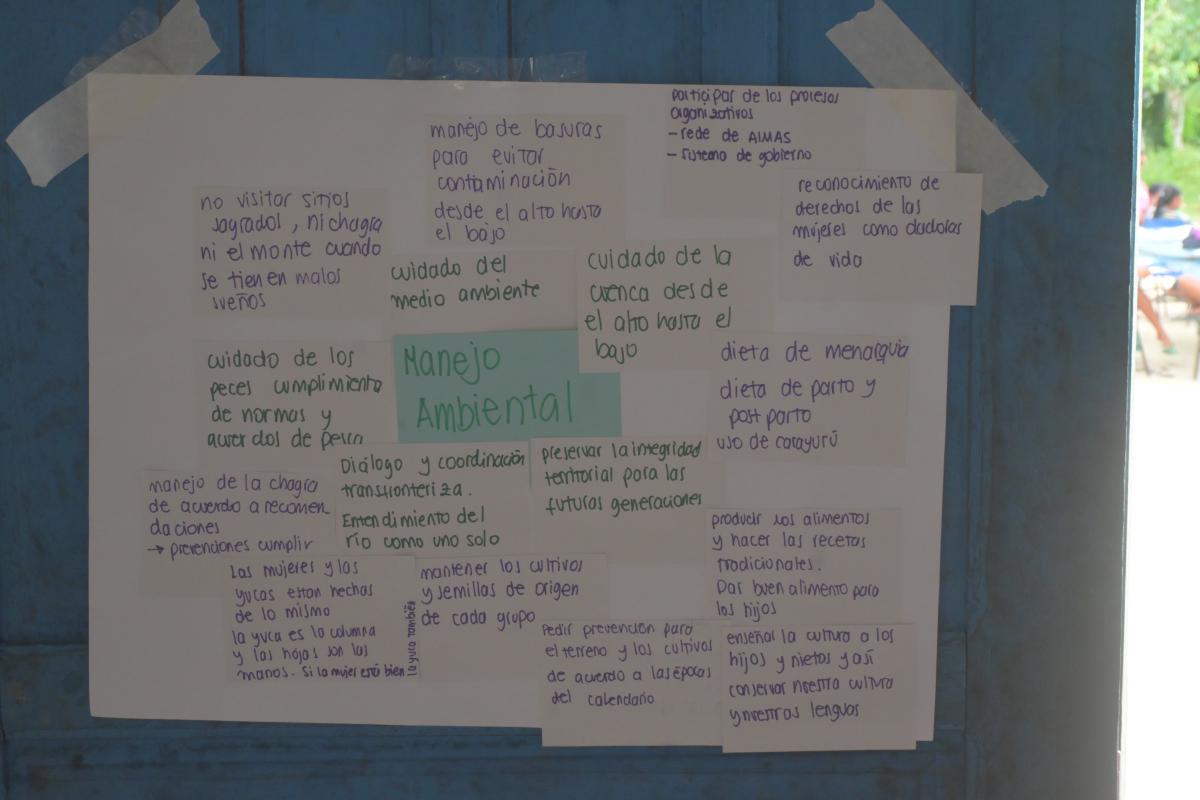 participar de los procesos
organizativos
- rede de AIMAS
- sistema de gobierno
manejo de basuras
para evitar
contaminación
desde el alto hasta
el bajo
reconocimiento de
derechos de las
mujeres como dadoras
de vida
no visitar sitios
sagrados, ni chagra
ni el monte cuando
se tienen malos
sueños
cuidado del
medio ambiente
cuidado de la
cuenca desde
el alto hasta el
bajo
Manejo
Ambiental
cuidado de los
peces cumplimiento
de normas y
acuerdos de pesca
dieta de menarquia
dieta de parto y
post parto
uso de carayurú
Diálogo y coordinación
transfronteriza.
Entendimiento del
río como uno solo
preservar la integridad
territorial para las
futuras generaciones
manejo de la chagra
de acuerdo a recomen-
daciones
→ prevenciones cumplir
producir los alimentos
y hacer las recetas
tradicionales.
Dar buen alimento para
los hijos
Las mujeres y las
yucas estan hechas
de lo mismo
la yuca es la columna
y las hojas son las
manos. Si la mujer está bien
la yuca también
mantener los cultivos
y semillas de origen
de cada grupo
Pedir prevención para
el terreno y los cultivos
de acuerdo a las épocas
del calendario
enseñar la cultura a los
hijos y nietos y así
conservar nuestra cultura
y nuestras lenguas